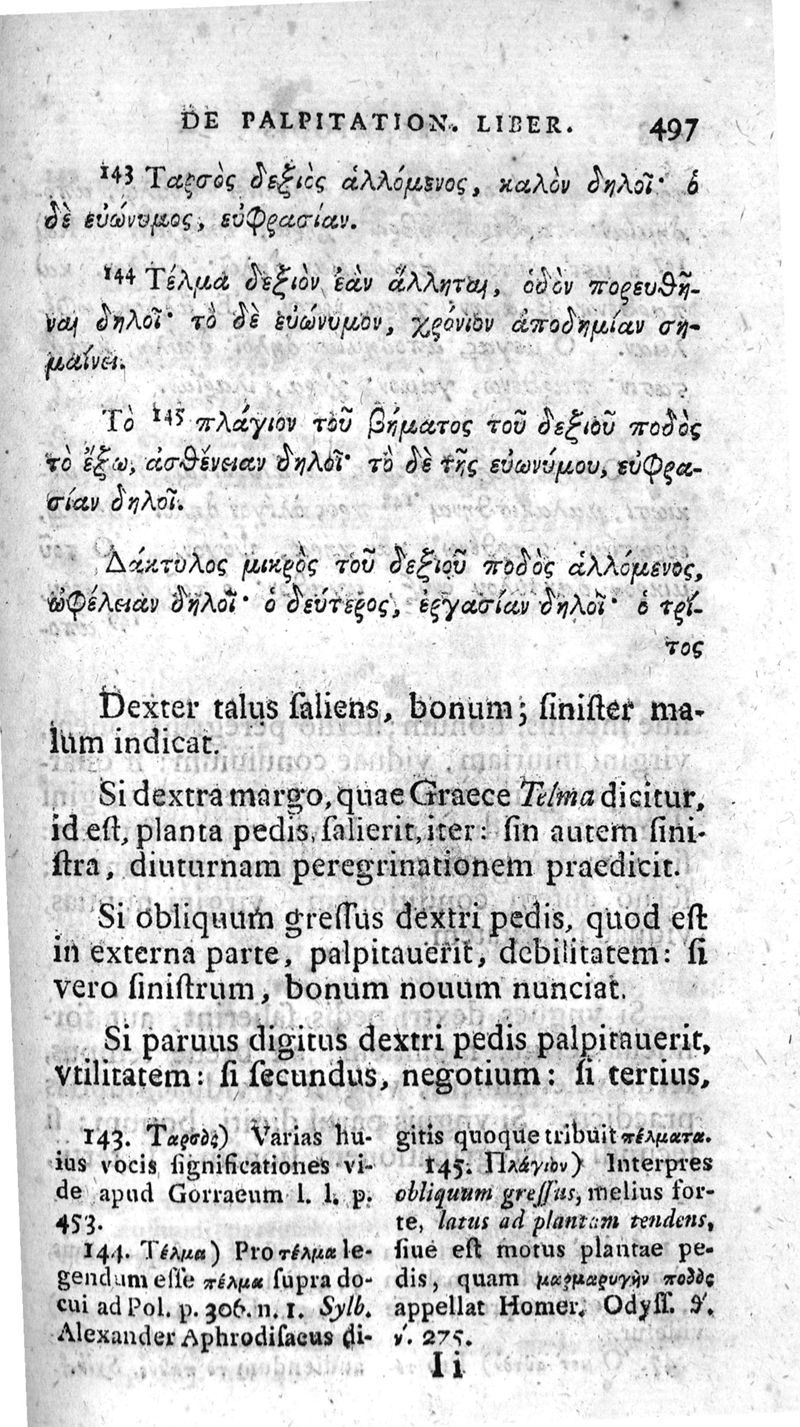 DE PALPITATION. LIBER. 497
¹⁴³ Ταρσὸς δεξιὸς ἁλλόμενος, καλὸν δηλοῖ· ὁ
δὲ εὐώνυμος, εὐφρασίαν.
¹⁴⁴ Τέλμα δεξιὸν ἐὰν ἅλληται, ὁδὸν πορευθῆ-
ναι δηλοῖ· τὸ δὲ εὐώνυμον, χρόνιον ἀποδημίαν ση-
μαίνει.
Τὸ ¹⁴⁵ πλάγιον τοῦ βήματος τοῦ δεξιοῦ ποδὸς
τὸ ἔξω, ἀσθένειαν δηλοῖ· τὸ δὲ τῆς εὐωνύμου, εὐφρα-
σίαν δηλοῖ.
Δάκτυλος μικρὸς τοῦ δεξιοῦ ποδὸς ἁλλόμενος,
ὠφέλειαν δηλοῖ· ὁ δεύτερος, ἐργασίαν δηλοῖ· ὁ τρί-
τος
Dexter talus ſaliens, bonum; ſiniſter ma-
lum indicat.
Si dextra margo, quae Graece Telma dicitur,
id eſt, planta pedis, ſalierit, iter: ſin autem ſini-
ſtra, diuturnam peregrinationem praedicit.
Si obliquum greſſus dextri pedis, quod eſt
in externa parte, palpitauerit, debilitatem: ſi
vero ſiniſtrum, bonum nouum nunciat.
Si paruus digitus dextri pedis palpitauerit,
vtilitatem: ſi ſecundus, negotium: ſi tertius,
143. Ταρσὸς) Varias hu-
ius vocis ſignificationes vi-
de apud Gorraeum l. l. p.
453.
144. Τέλμα) Pro τέλμα le-
gendum eſſe πέλμα ſupra do-
cui ad Pol. p. 306. n. 1. Sylb.
Alexander Aphrodiſaeus di-
gitis quoque tribuit πέλματα.
145. Πλάγιον) Interpres
obliquum greſſus, melius for-
te, latus ad plantam tendens,
ſiue eſt motus plantae pe-
dis, quam μαρμαρυγὴν ποδὸς
appellat Homer. Odyſſ. θ'.
ν. 275.
Ii